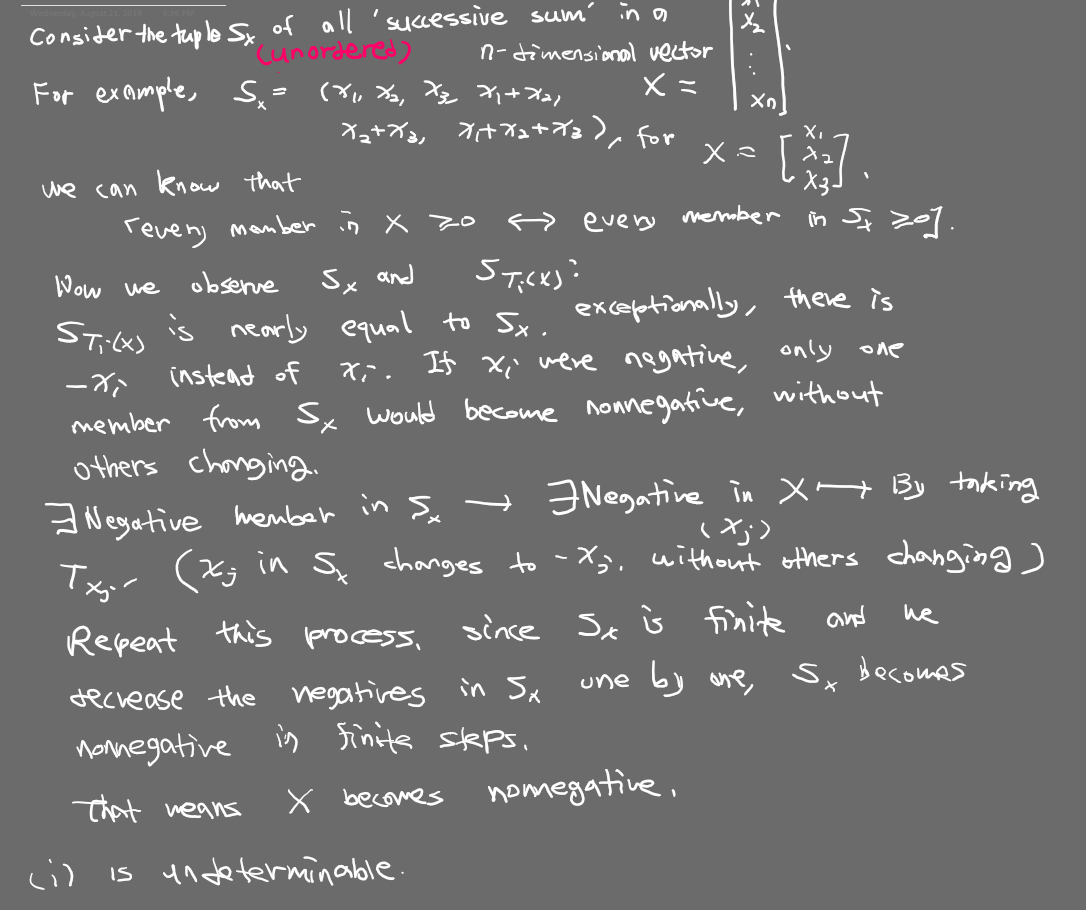 Wednesday, August 21, 2019 5:48 PM
Consider the tuple Sₓ of all 'successive sum' in a
(unordered) n-dimensional vector
X = [x₁ x₂ ⋮ xₙ].
For example, Sₓ = (x₁, x₂, x₃, x₁+x₂,
x₂+x₃, x₁+x₂+x₃), for X = [x₁ x₂ x₃].
we can know that
「every member in X ≥0 ↔ every member in Sₓ ≥0」.
Now we observe Sₓ and S_Tᵢ(x):
S_Tᵢ(x) is nearly equal to Sₓ. exceptionally, there is
-xᵢ instead of xᵢ. If xᵢ were negative, only one
member from Sₓ would become nonnegative, without
others changing.
∃Negative member in Sₓ → ∃Negative in X ↦ By taking
(xⱼ)
T_xⱼ. (xⱼ in Sₓ changes to -xⱼ. without others changing)
Repeat this process. since Sₓ is finite and we
decrease the negatives in Sₓ one by one, Sₓ becomes
nonnegative in finite steps.
That means X becomes nonnegative.
(i) is undeterminable.